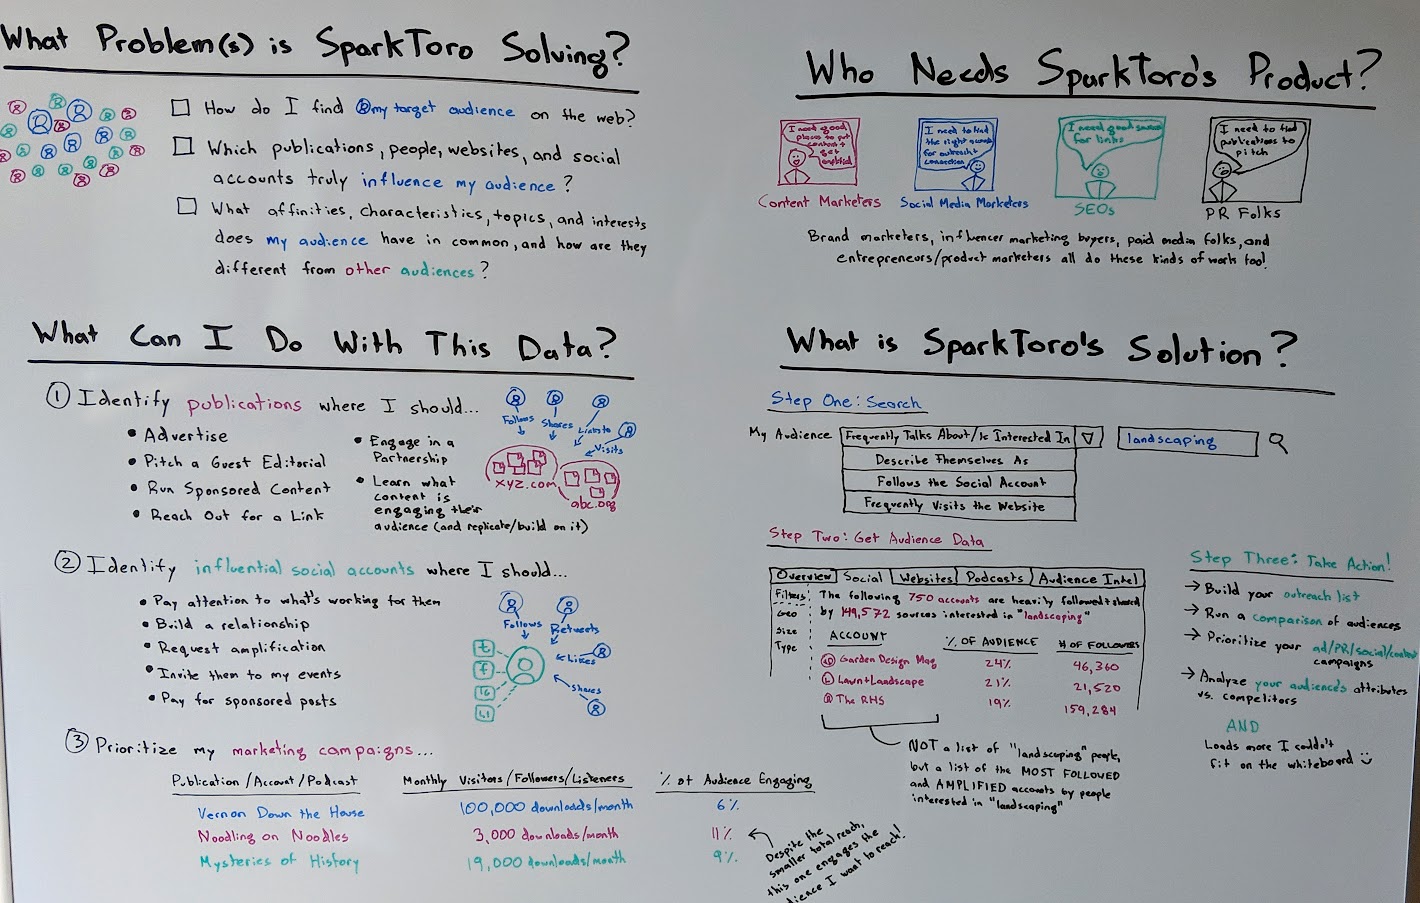 What Problem(s) is SparkToro Solving?
How do I find my target audience on the web?
Which publications, people, websites, and social
accounts truly influence my audience?
What affinities, characteristics, topics, and interests
does my audience have in common, and how are they
different from other audiences?
Who Needs SparkToro's Product?
I need good
places to put
content + get
amplified
Content Marketers
I need to find
the right accounts
for outreach +
connection
Social Media Marketers
I need good sources
for links
SEOs
I need to find
publications to
pitch
PR Folks
Brand marketers, influencer marketing buyers, paid media folks, and
entrepreneurs/product marketers all do these kinds of work too!
What Can I Do With This Data?
① Identify publications where I should...
• Advertise
• Pitch a Guest Editorial
• Run Sponsored Content
• Reach Out for a Link
• Engage in a
Partnership
• Learn what
content is
engaging their
audience (and replicate/build on it)
Follows
Shares
Links to
Visits
xyz.com
abc.org
② Identify influential social accounts where I should...
• Pay attention to what's working for them
• Build a relationship
• Request amplification
• Invite them to my events
• Pay for sponsored posts
Follows
Retweets
Likes
Shares
t
f
IG
Li
③ Prioritize my marketing campaigns...
Publication/Account/Podcast Monthly Visitors/Followers/Listeners % of Audience Engaging
Vernon Down the House 100,000 downloads/month 6%
Noodling on Noodles 3,000 downloads/month 11%
Mysteries of History 19,000 downloads/month 9%
Despite the
smaller total reach,
this one engages the
I want to reach!
What is SparkToro's Solution?
Step One: Search
My Audience Frequently Talks About/Is Interested In landscaping
Describe Themselves As
Follows the Social Account
Frequently Visits the Website
Step Two: Get Audience Data
Overview Social Websites Podcasts Audience Intel
Filters
Geo
Size
Type
The following 750 accounts are heavily followed + shared
by 149,572 sources interested in "landscaping"
ACCOUNT % OF AUDIENCE # OF FOLLOWERS
Garden Design Mag 24% 46,360
Lawn + Landscape 21% 21,520
The RHS 19% 159,284
NOT a list of "landscaping" people,
but a list of the MOST FOLLOWED
and AMPLIFIED accounts by people
interested in "landscaping"
Step Three: Take Action!
→ Build your outreach list
→ Run a comparison of audiences
→ Prioritize your ad/PR/social/content
campaigns
→ Analyze your audience's attributes
vs. competitors
AND
Loads more I couldn't
fit on the whiteboard